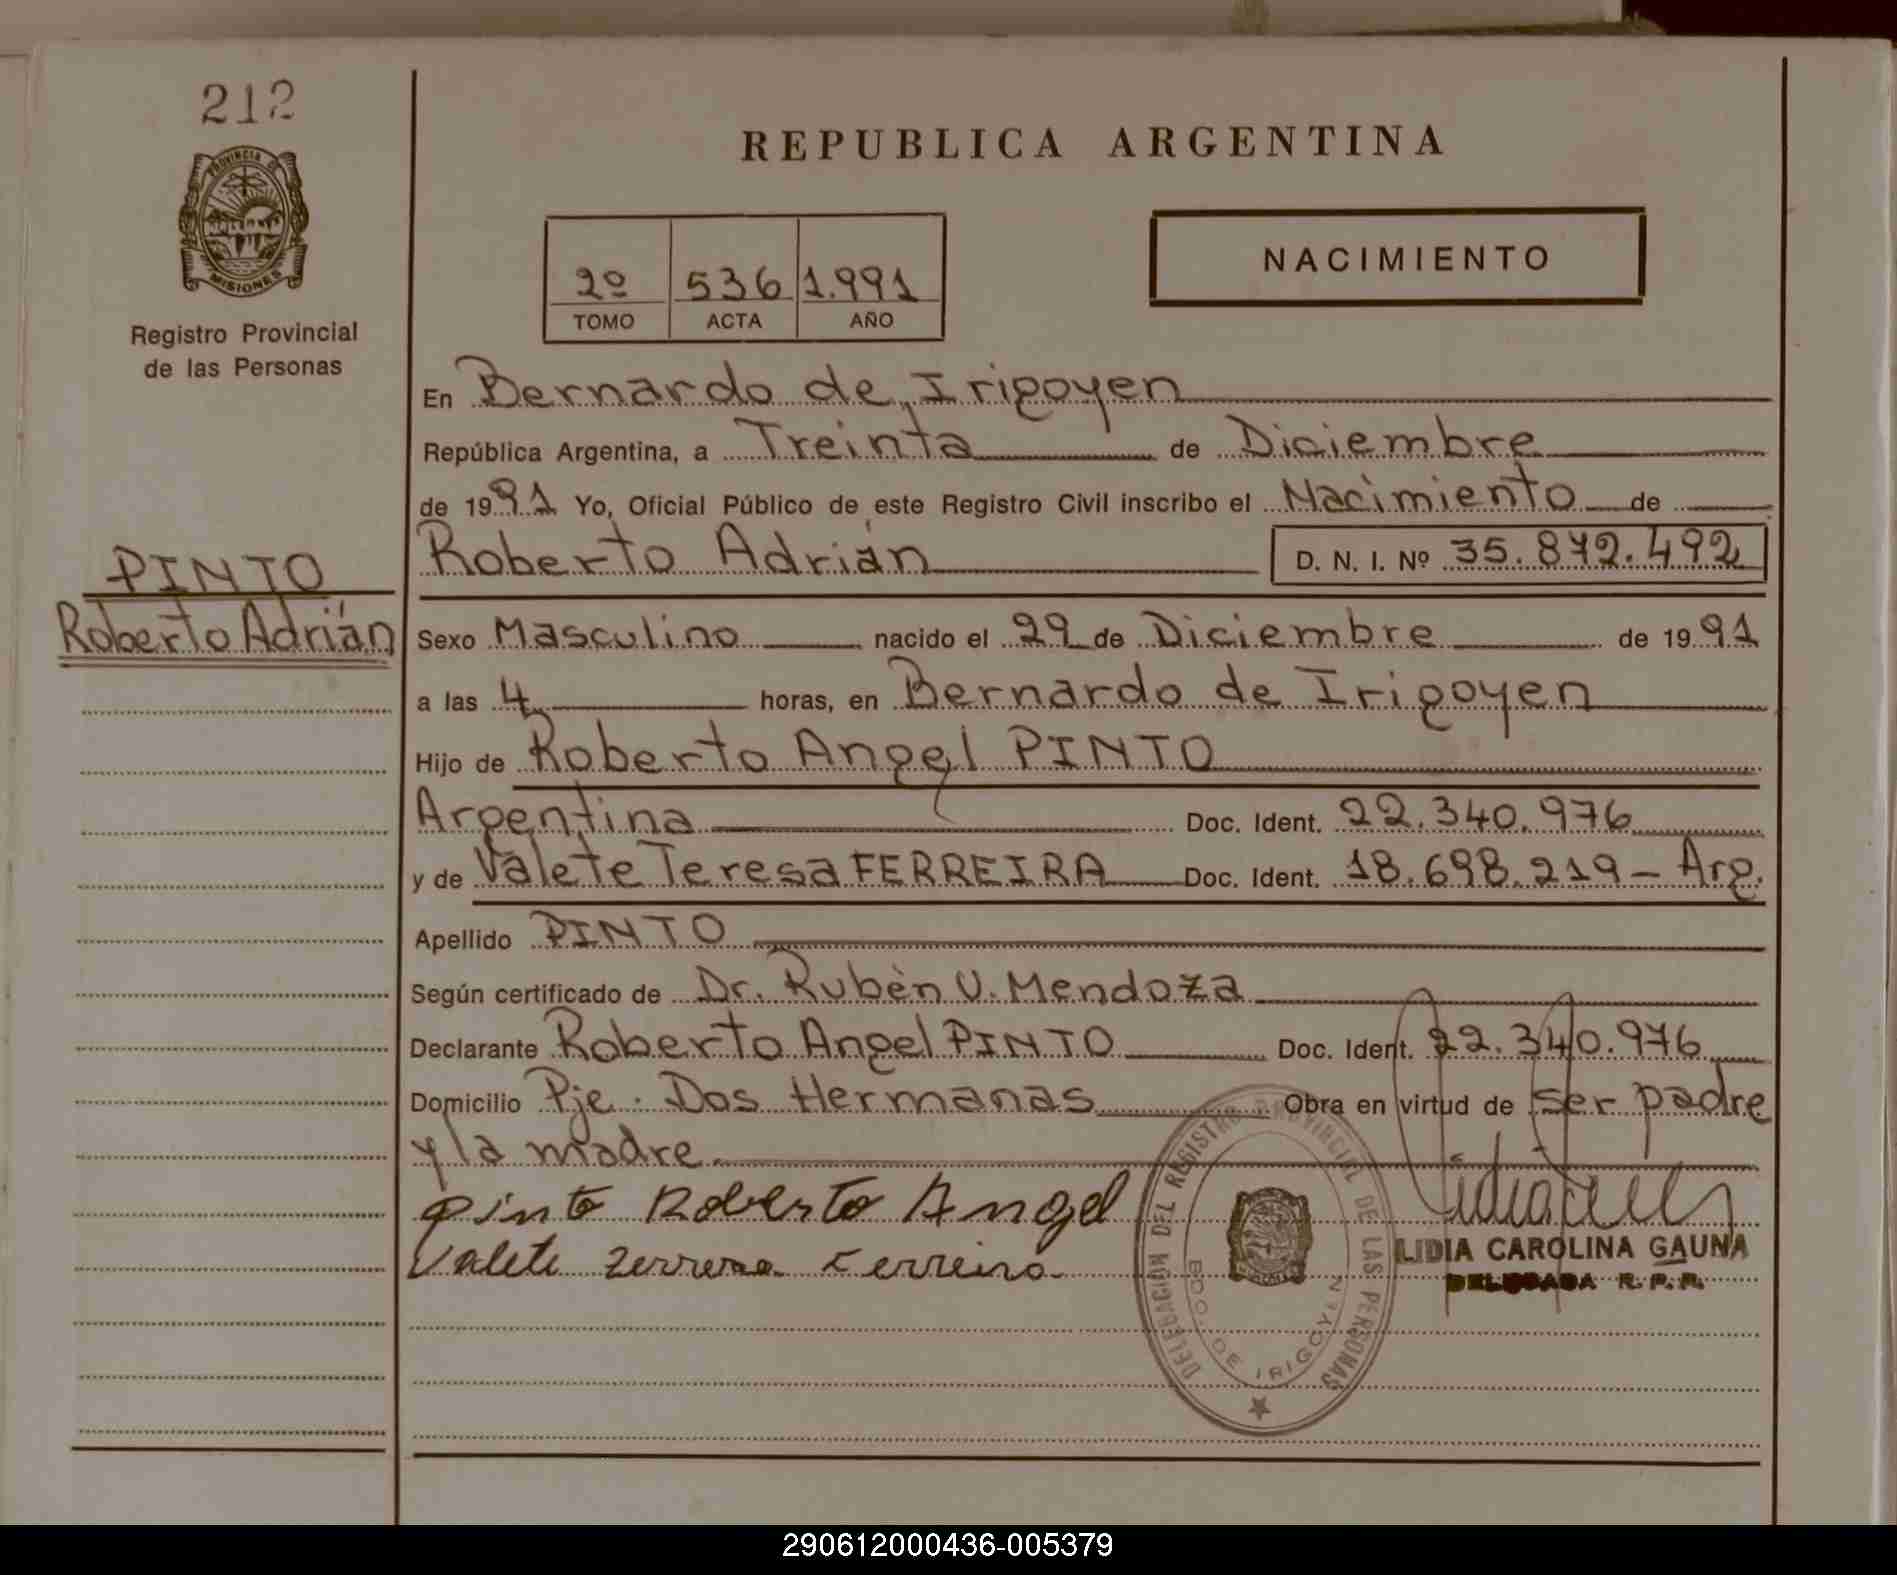 212
PROVINCIA DE
MISIONES
Registro Provincial
de las Personas
PINTO
Roberto Adrián
REPUBLICA ARGENTINA
2º 536 1.991
TOMO ACTA AÑO
NACIMIENTO
En Bernardo de Irigoyen
República Argentina, a Treinta de Diciembre
de 1991 Yo, Oficial Público de este Registro Civil inscribo el Nacimiento de
Roberto Adrián D. N. I. Nº 35.872.492
Sexo Masculino nacido el 29 de Diciembre de 1991
a las 4 horas, en Bernardo de Irigoyen
Hijo de Roberto Angel PINTO
Argentina Doc. Ident. 22.340.976
y de Valete Teresa FERREIRA Doc. Ident. 18.698.219 – Arg.
Apellido PINTO
Según certificado de Dr. Rubèn V. Mendoza
Declarante Roberto Angel PINTO Doc. Ident. 22.340.976
Domicilio Pje. Dos Hermanas Obra en virtud de ser padre
y la madre.
Pinto Roberto Angel
Valete Ferreira
DELEGACION DEL REGISTRO PROVINCIAL DE LAS PERSONAS
BDO. DE IRIGOYEN
LIDIA CAROLINA GAUNA
DELEGADA R. P. P.
290612000436-005379